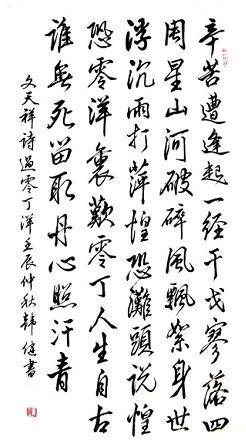 辛苦遭逢起一經干戈寥落四
周星山河破碎風飄絮身世
浮沉雨打萍惶恐灘頭說惶
恐零洋裏歎零丁人生自古
誰無死留取丹心照汗青
文天祥詩過零丁洋壬辰仲秋韓健書